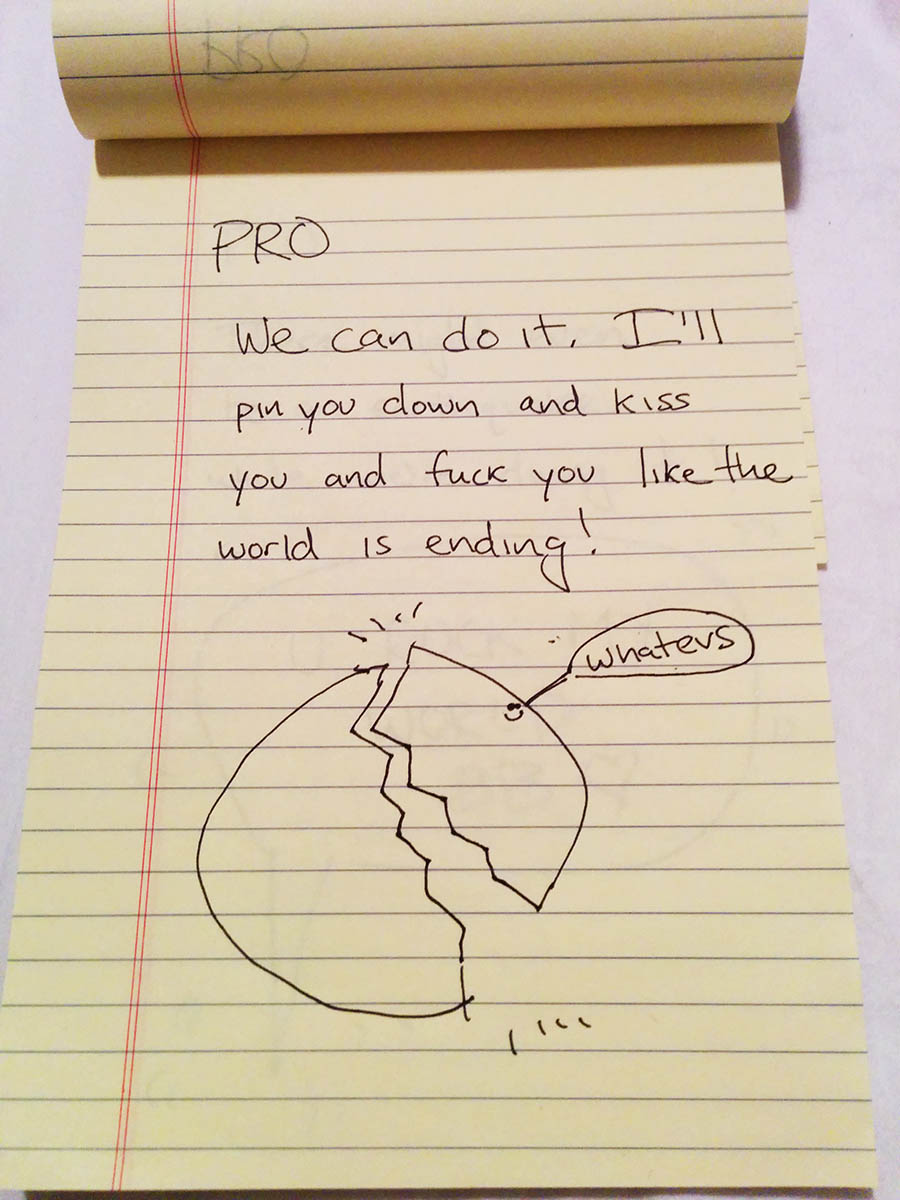 PRO
PRO
We can do it. I'll
pin you down and kiss
you and fuck you like the
world is ending!
whatevs